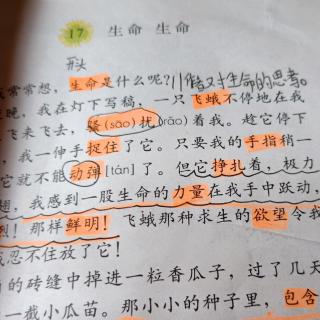 17 生命 生命
开头
常常想，生命是什么呢？作者对生命的思考。
晚，我在灯下写稿，一只飞蛾不停地在我
飞来飞去，骚(sāo)扰(rǎo)着。趁它停下
，我一伸手捉住了它。只要我的手指稍一
它就不能动弹[tán]了。但它挣扎着，极力
翅，我感到一股生命的力量在我手中跃动，
烈！那样鲜明！飞蛾那种求生的欲望令我
忍不住放了它！
的砖缝中掉进一粒香瓜子，过了几天
一截小瓜苗。那小小的种子里，包含